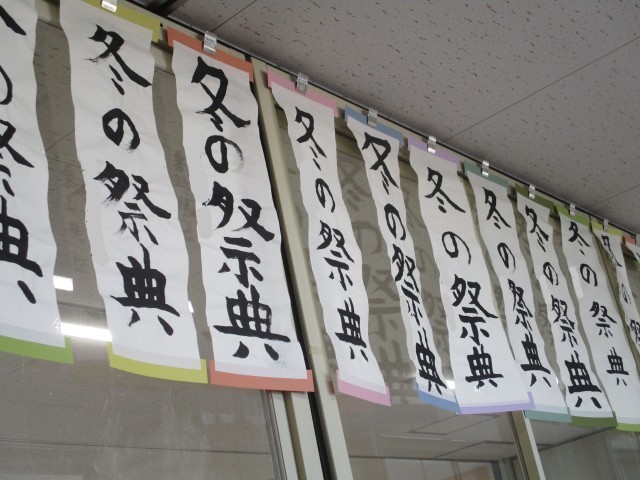 冬の祭典
冬の祭典
冬の祭典
冬の祭典
冬の祭典
冬の祭典
冬の祭典
冬の祭典
冬の祭典